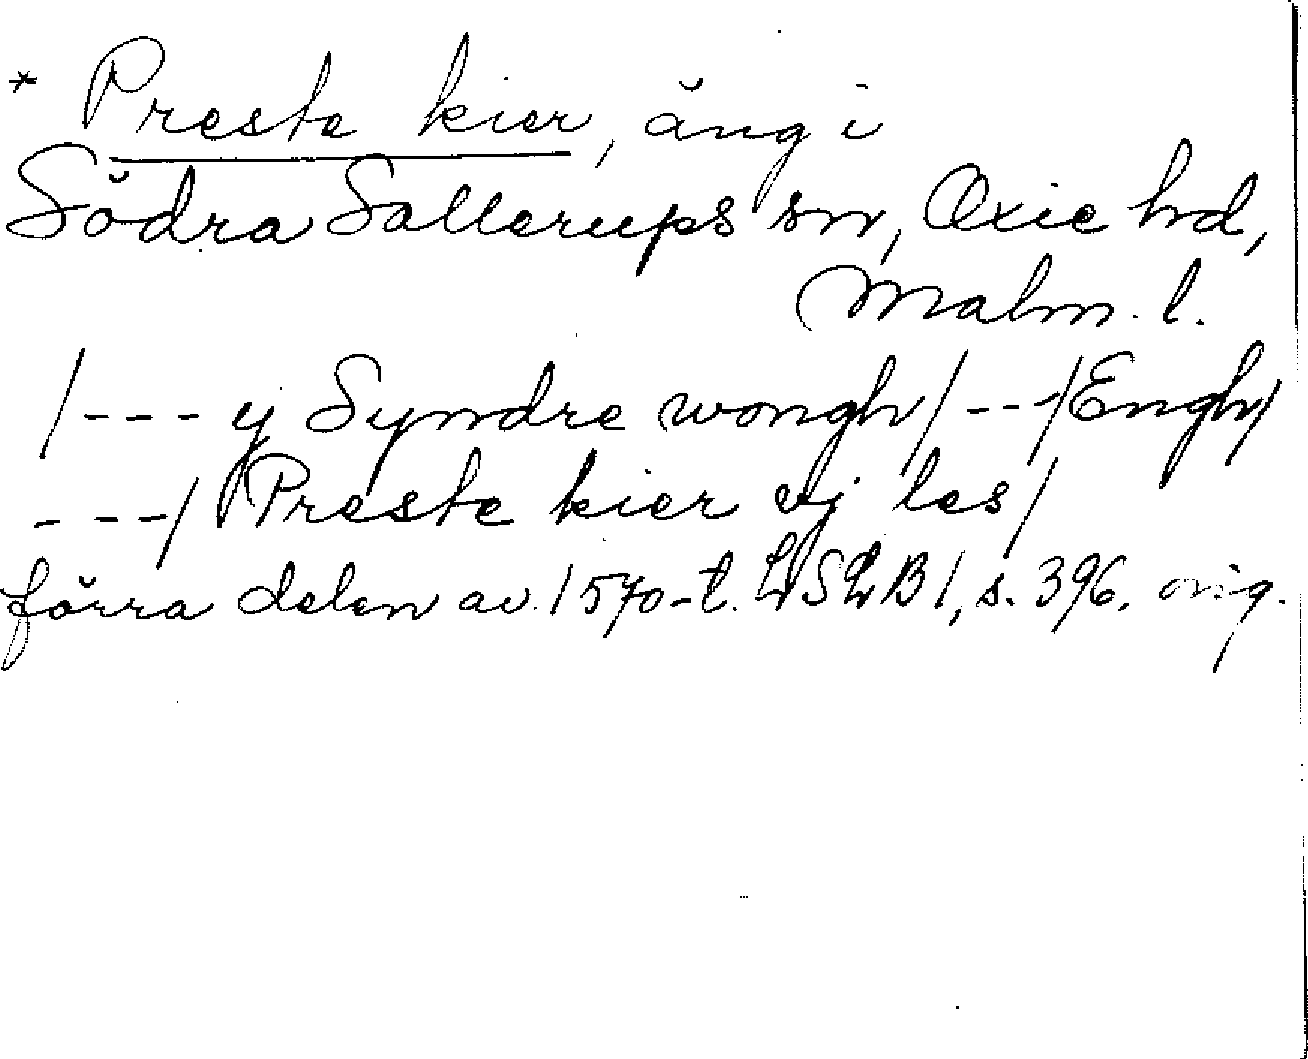 * Preste kier, äng i
Södra Sallerups sn, Oxie hd,
Malm. l.
/--- y Syndre wongh/--/Engh/
---/ Preste kier vj les/
förra delen av 1570-t. LSLB 1, s. 396. orig.